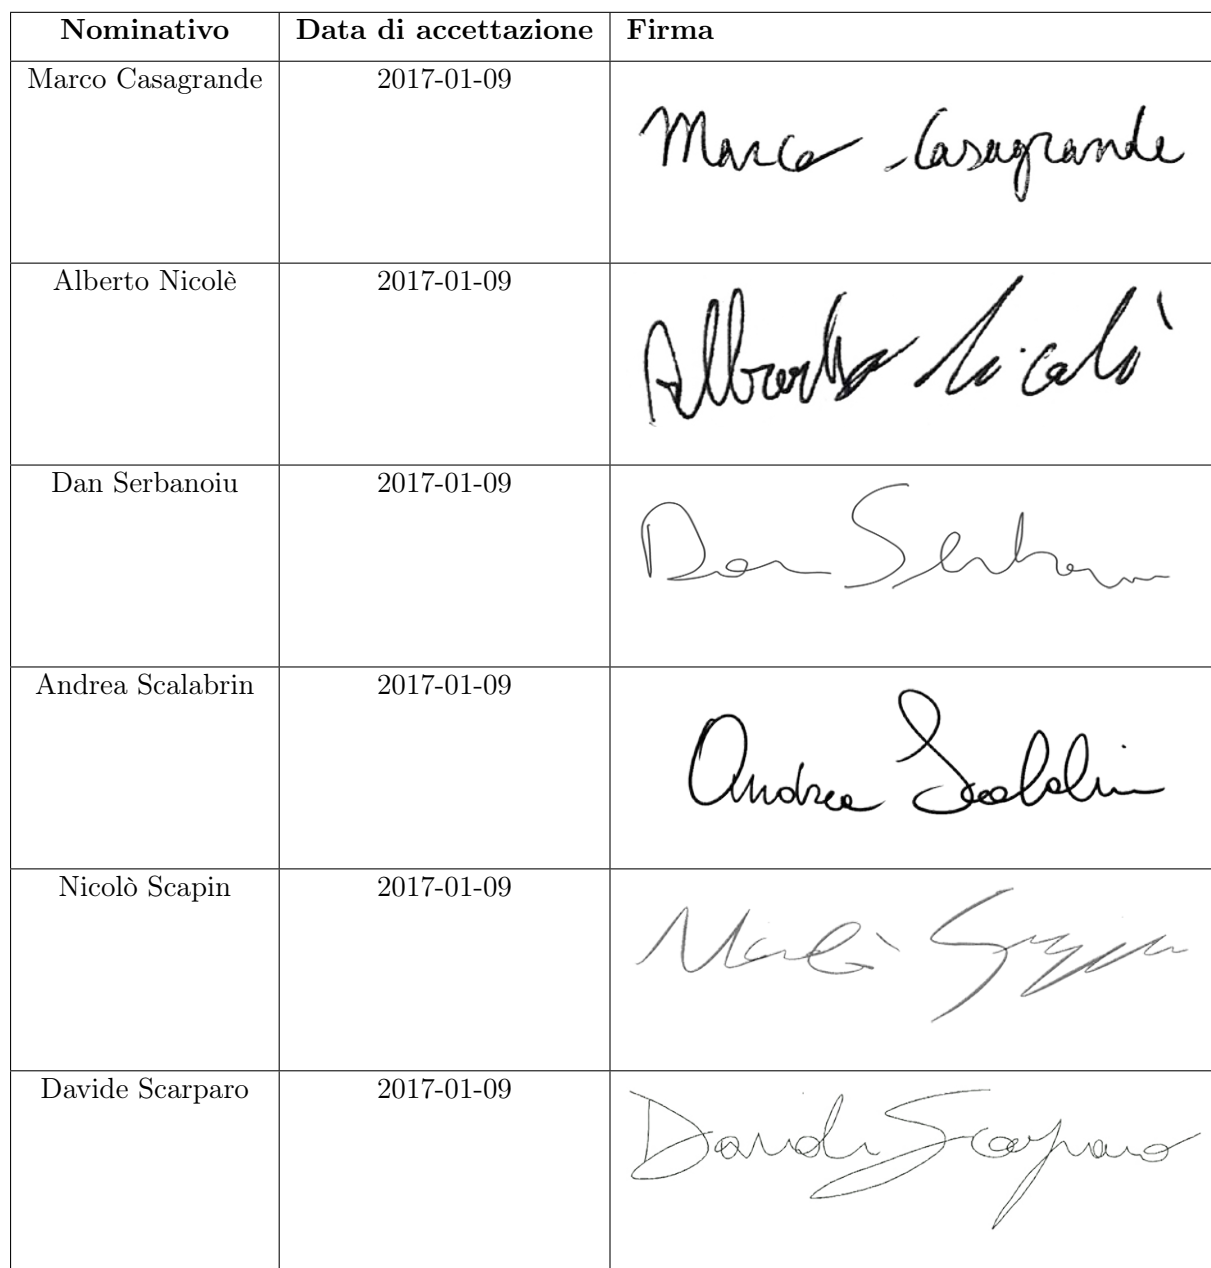 Nominativo Data di accettazione Firma
Marco Casagrande 2017-01-09 Marco Casagrande
Alberto Nicolè 2017-01-09 Alberto Nicolè
Dan Serbanoiu 2017-01-09 Dan
Andrea Scalabrin 2017-01-09 Andrea Scalabrin
Nicolò Scapin 2017-01-09 Nicolò
Davide Scarparo 2017-01-09 Davide Scarparo